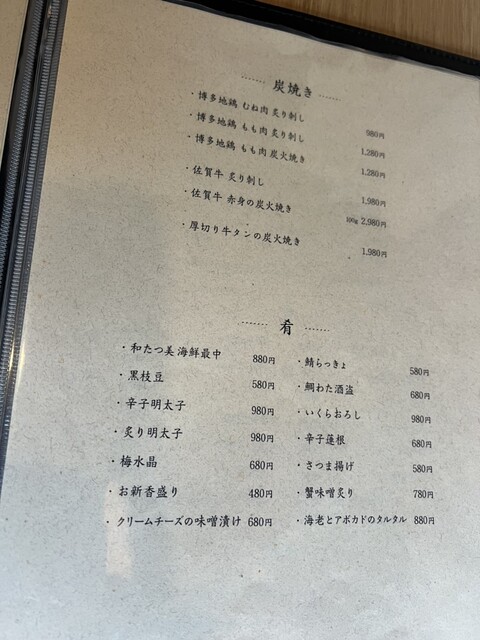 炭焼き
・博多地鶏 むね肉 炙り刺し 980円
・博多地鶏 もも肉 炙り刺し 1,280円
・博多地鶏 もも肉 炭火焼き 1,280円
・佐賀牛 炙り刺し 1,980円
・佐賀牛 赤身の炭火焼き 100g 2,980円
・厚切り牛タンの炭火焼き 1,980円
肴
・和たつ美 海鮮最中 880円
・黒枝豆 580円
・辛子明太子 980円
・炙り明太子 980円
・梅水晶 680円
・お新香盛り 480円
・クリームチーズの味噌漬け 680円
・鯖らっきょ 580円
・鯛わた酒盗 680円
・いくらおろし 980円
・辛子蓮根 680円
・さつま揚げ 580円
・蟹味噌炙り 780円
・海老とアボカドのタルタル 880円